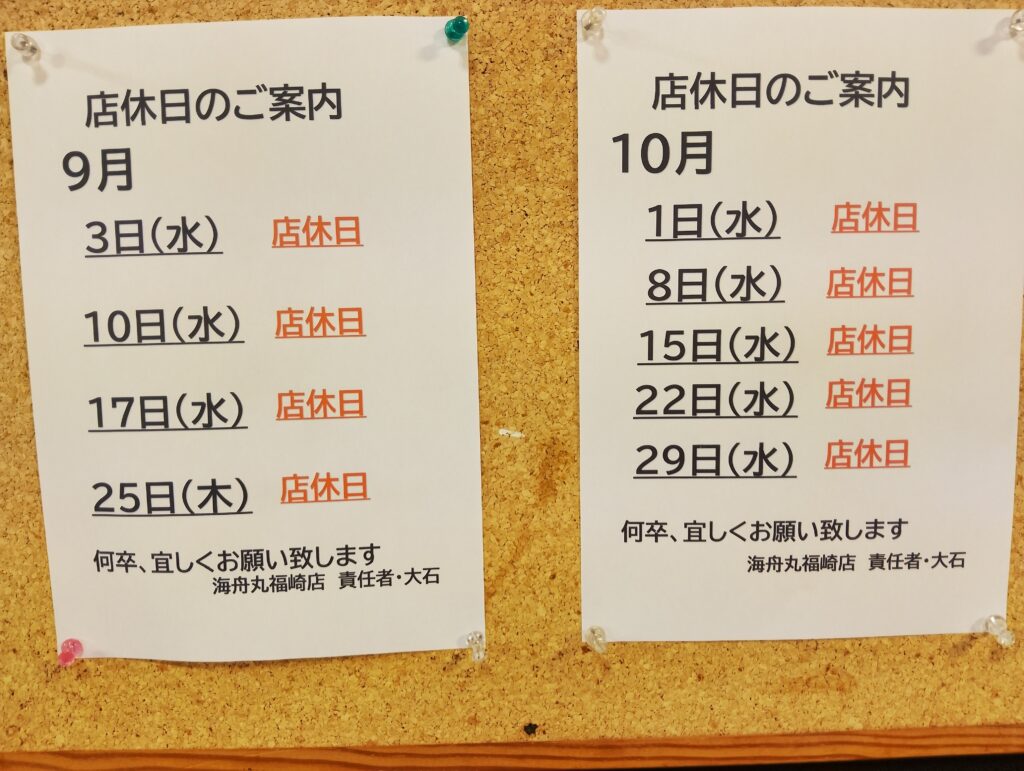 店休日のご案内
9月
3日(水) 店休日
10日(水) 店休日
17日(水) 店休日
25日(木) 店休日
何卒、宜しくお願い致します
海舟丸福崎店 責任者・大石
店休日のご案内
10月
1日(水) 店休日
8日(水) 店休日
15日(水) 店休日
22日(水) 店休日
29日(水) 店休日
何卒、宜しくお願い致します
海舟丸福崎店 責任者・大石